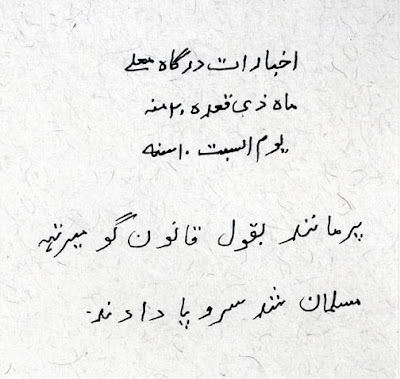 اخبارات درگاه معلے
ماه ذی قعده ۲۰ سنه
یوم السبت ۱۰ سنه
پرمانند بقول قانون گو میرتهه
مسلمان شد سروپا دادند